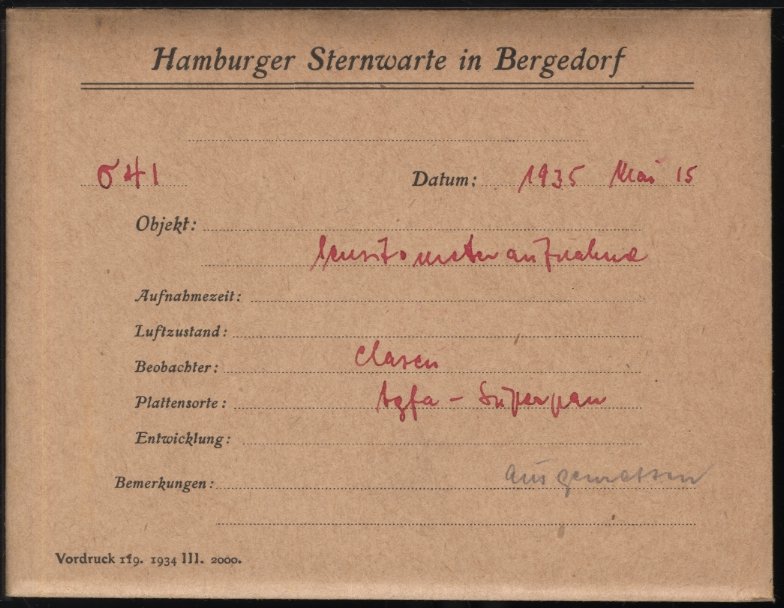 Hamburger Sternwarte in Bergedorf
σ 41 Datum: 1935 Mai 15
Objekt:
Sensitometeraufnahme
Aufnahmezeit:
Luftzustand:
Beobachter: Clasen
Plattensorte: Agfa - Superpan
Entwicklung:
Bemerkungen: Ausgemessen
Vordruck 119. 1934 III. 2000.